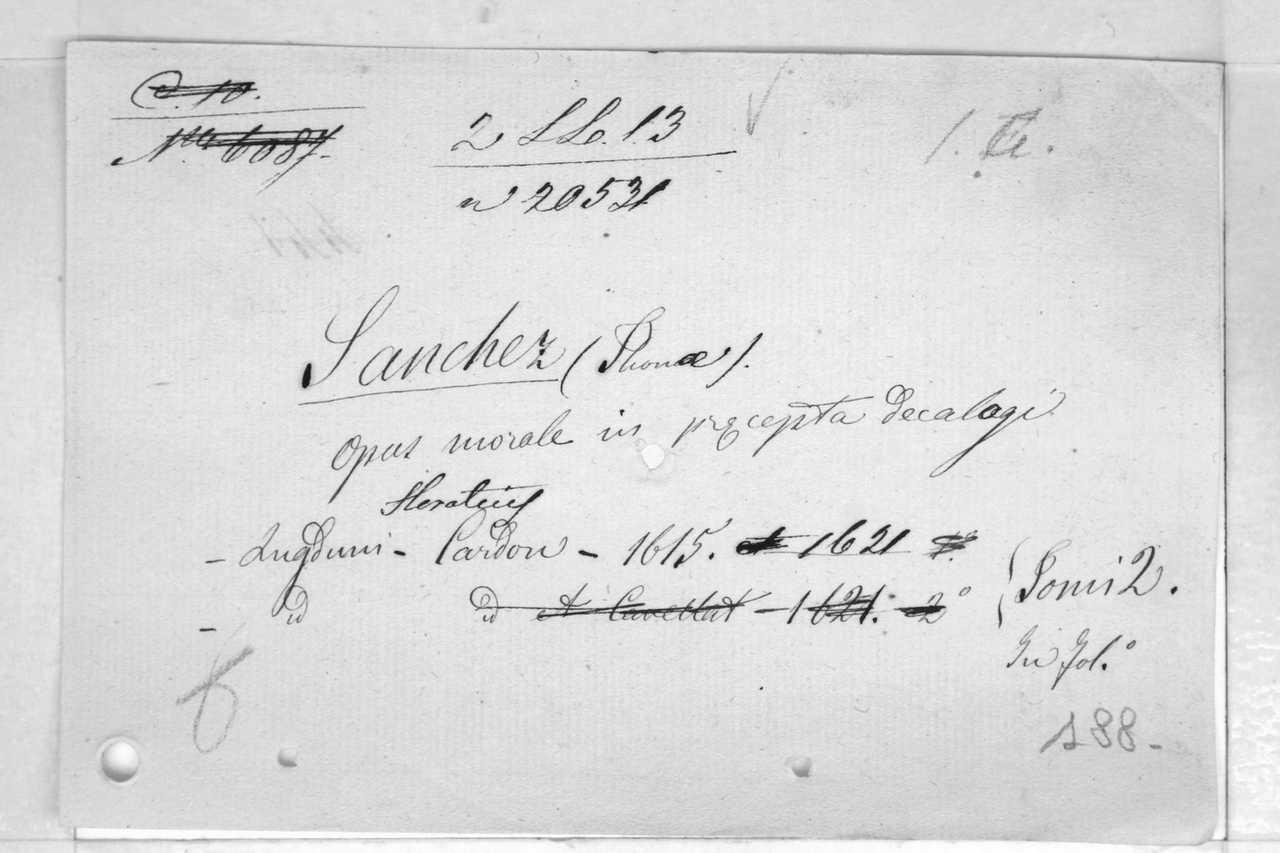 C. 10.
No. 6087.
2 LL. 13
n 20531
1. Te.
Sanchez (Thomæ).
Opus morale in præcepta decalogi
Horatius
- Lugduni - Cardon - 1615. et 1621
- id id et Cavellat - 1621. 2° { Tomi 2.
In fol.°
188-